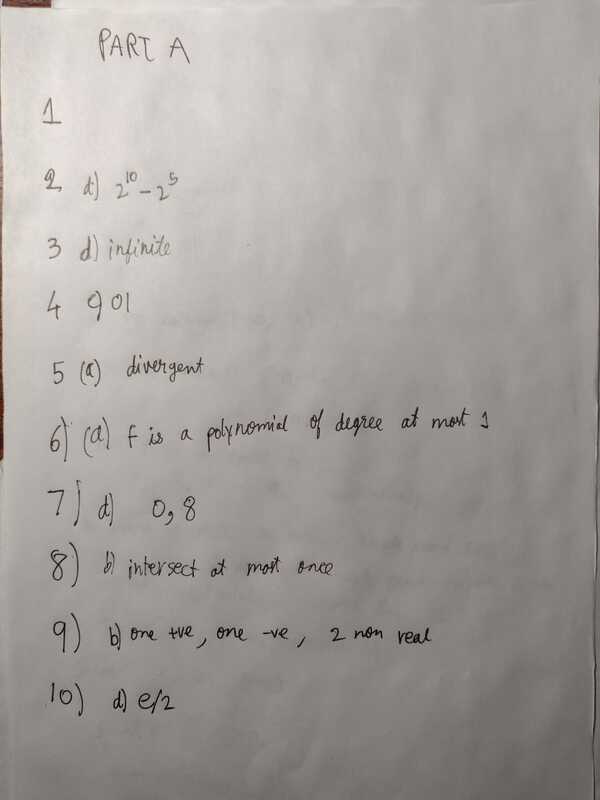 PART A
1
2 d) 2¹⁰ - 2⁵
3 d) infinite
4 901
5 (a) divergent
6) (a) f is a polynomial of degree at most 1
7) d) 0, 8
8) b) intersect at most once
9) b) one +ve, one -ve, 2 non real
10) d) e/2